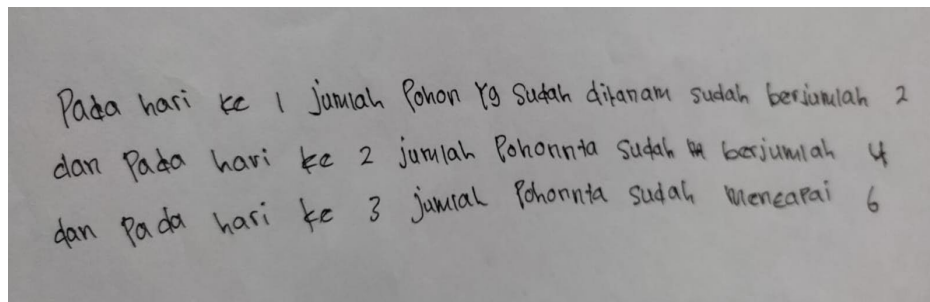 Pada hari ke 1 jumlah Pohon Yg Sudah ditanam sudah berjumlah 2
dan Pada hari ke 2 jumlah Pohonnta Sudah berjumlah 4
dan Pada hari ke 3 jumlah Pohonnta sudah Mencapai 6